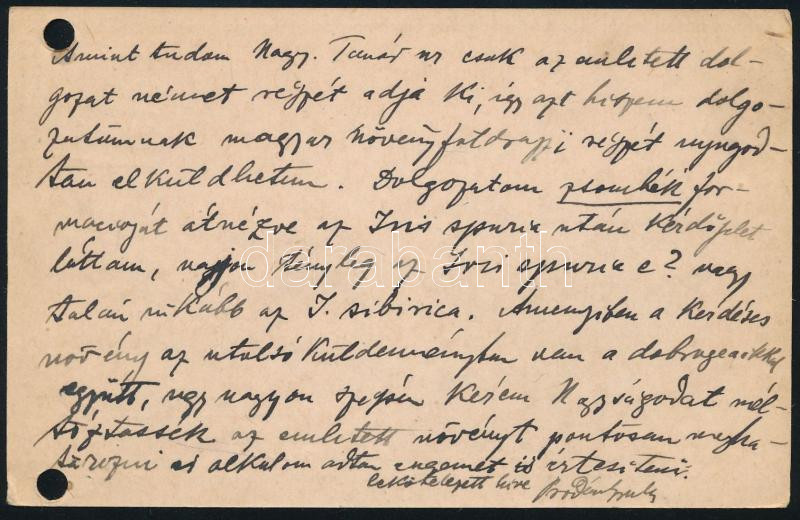 Amint tudom Nagys. Tanár ur csak az emlitett dol-
gozat német részét adja ki, igy azt hiszem dolgo-
zatomnak magyar növényföldrajzi részét nyugod-
tan elküldhetem. Dolgozatom zsombék for-
macioját átnézve az Iris spuria után kérdőjelet
láttam, vajjon tényleg az Iris spuria e? vagy
talán inkább az I. sibirica. Amenyiben a kérdéses
növény az utolsó küldeményben van a dobrugeaiakkal
együtt, ugy nagyon szepen kérem Nagyságodat mél-
tóztassék az emlitett növényt pontosan megha-
tarozni es alkalom adtán engemet is értesiteni.
lekötelezett hive Prodán Gyula
darabanth